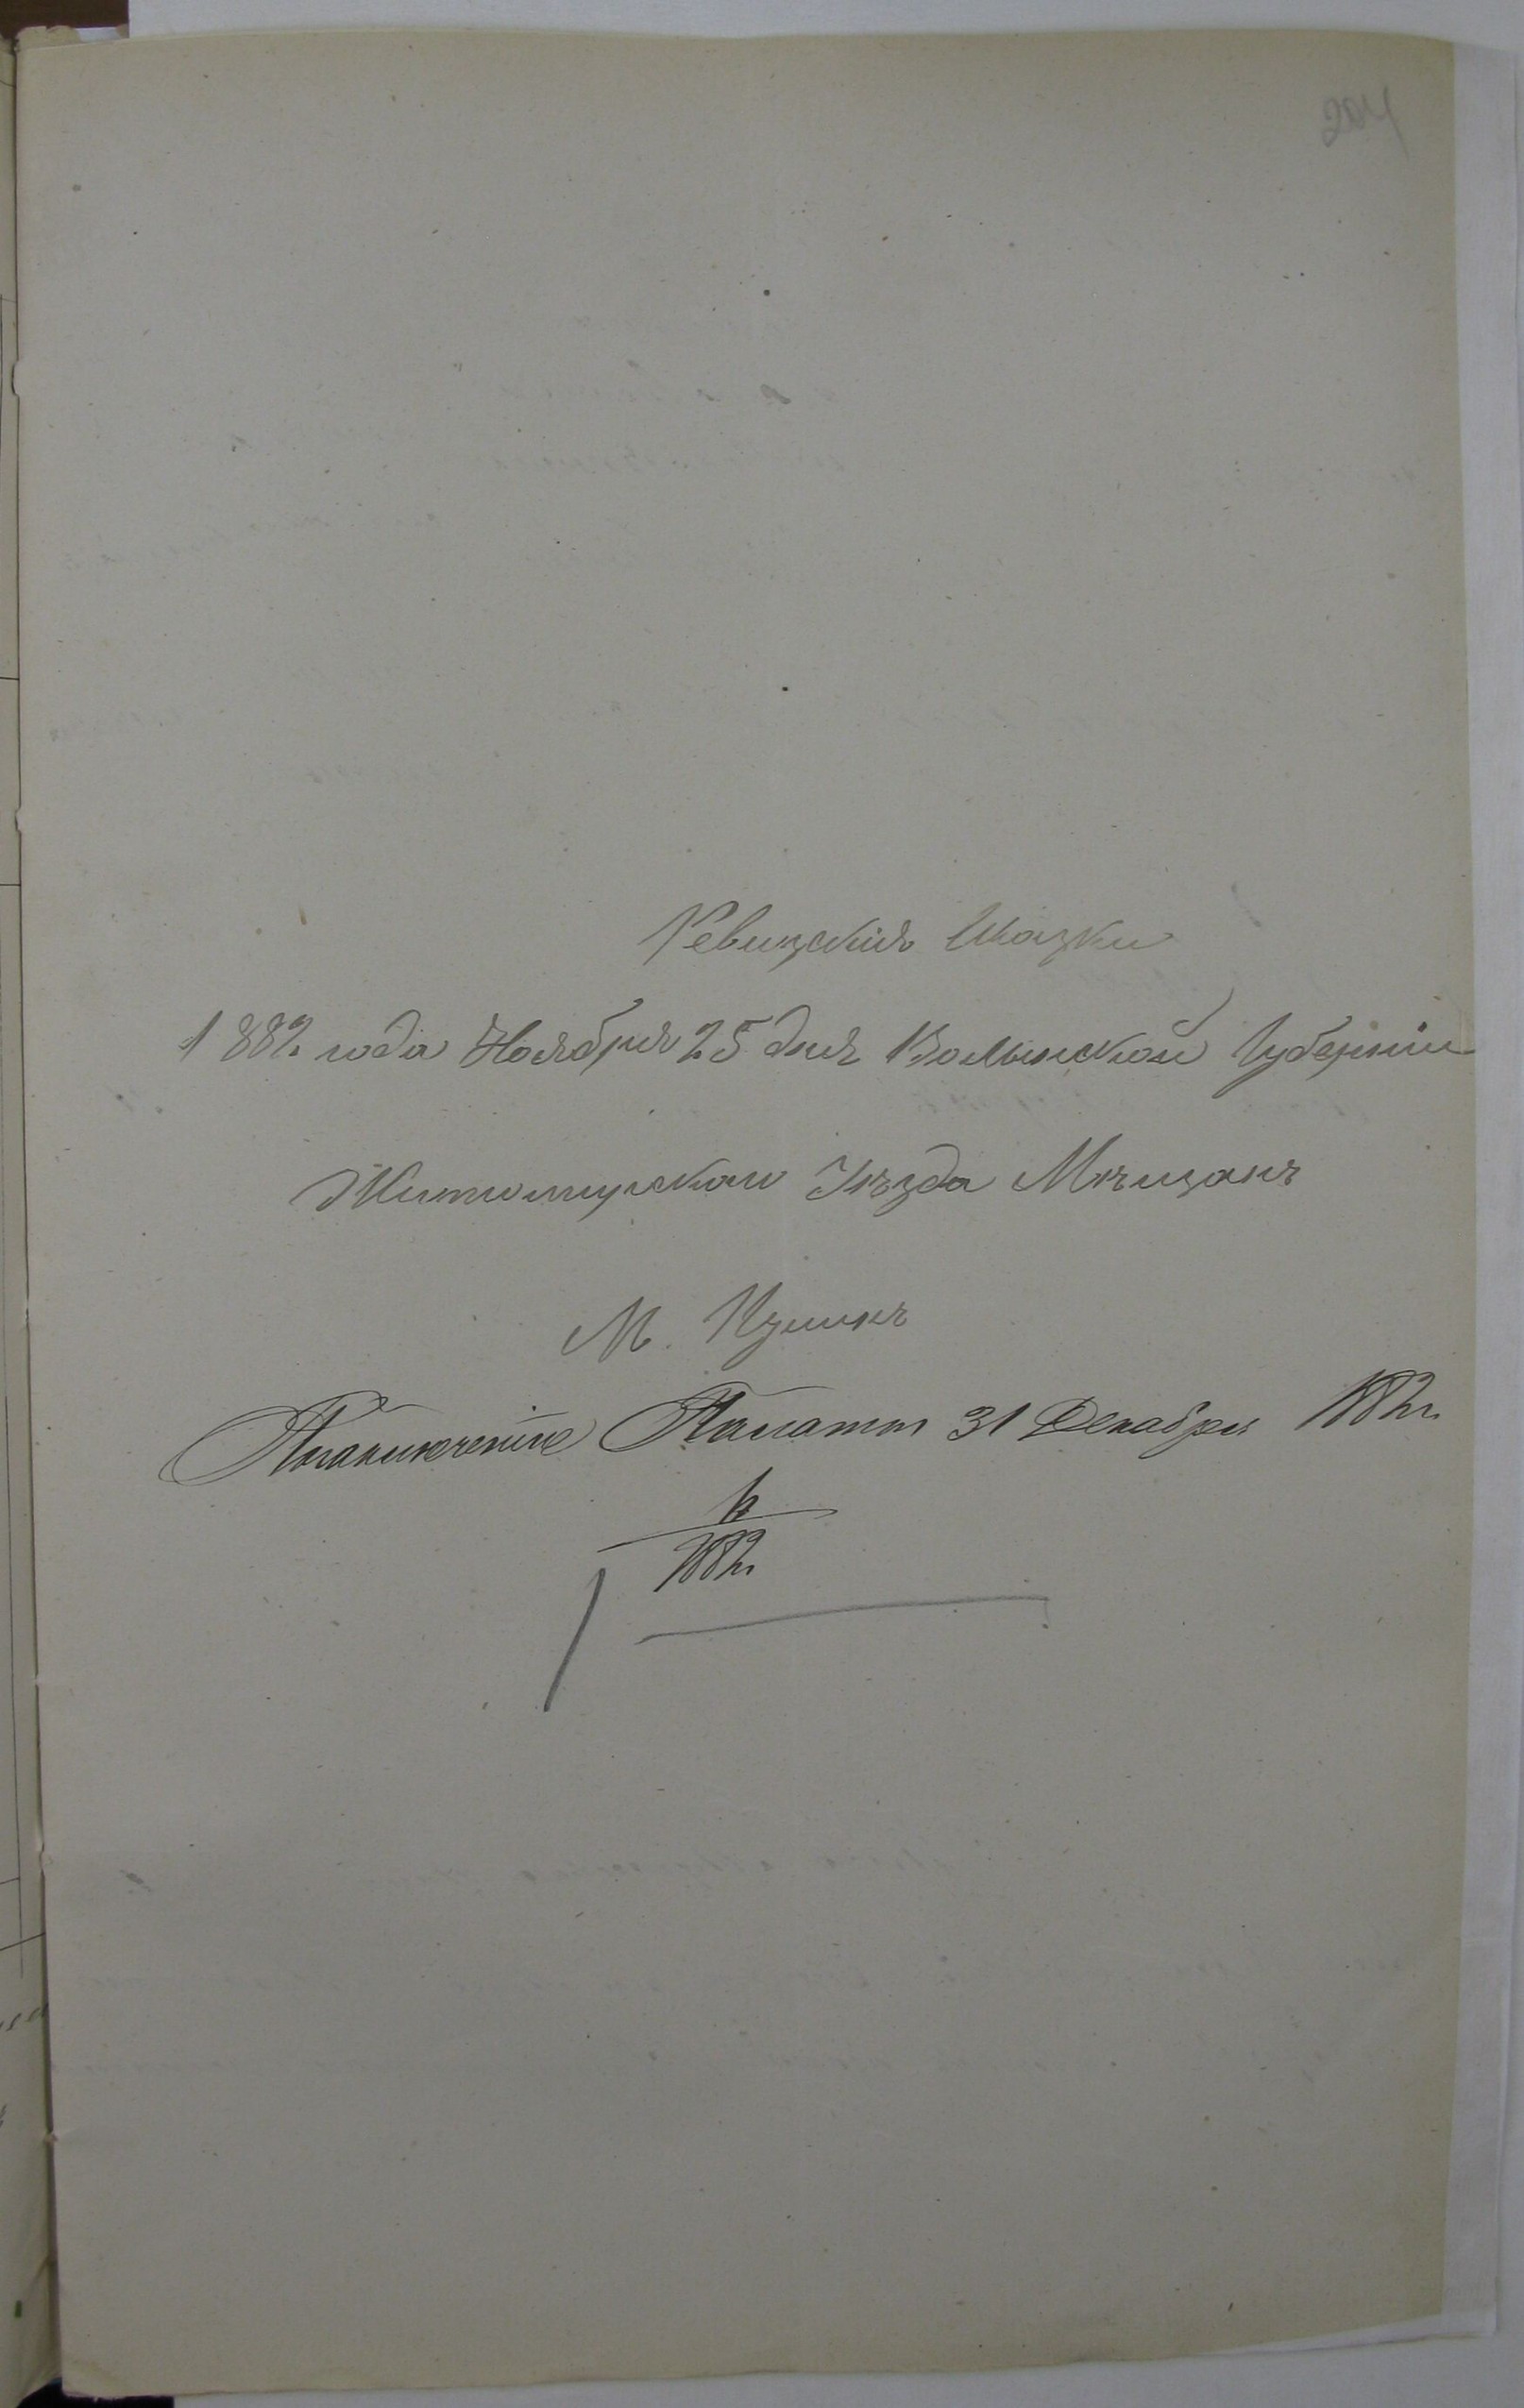 204
Ревизскія Сказки
1882 года Ноября 25 дня Волынской Губерніи
Житомирскаго Уѣзда Мѣщанъ
М.
Палаты 31 Декабря 1882 г.
1882 г.